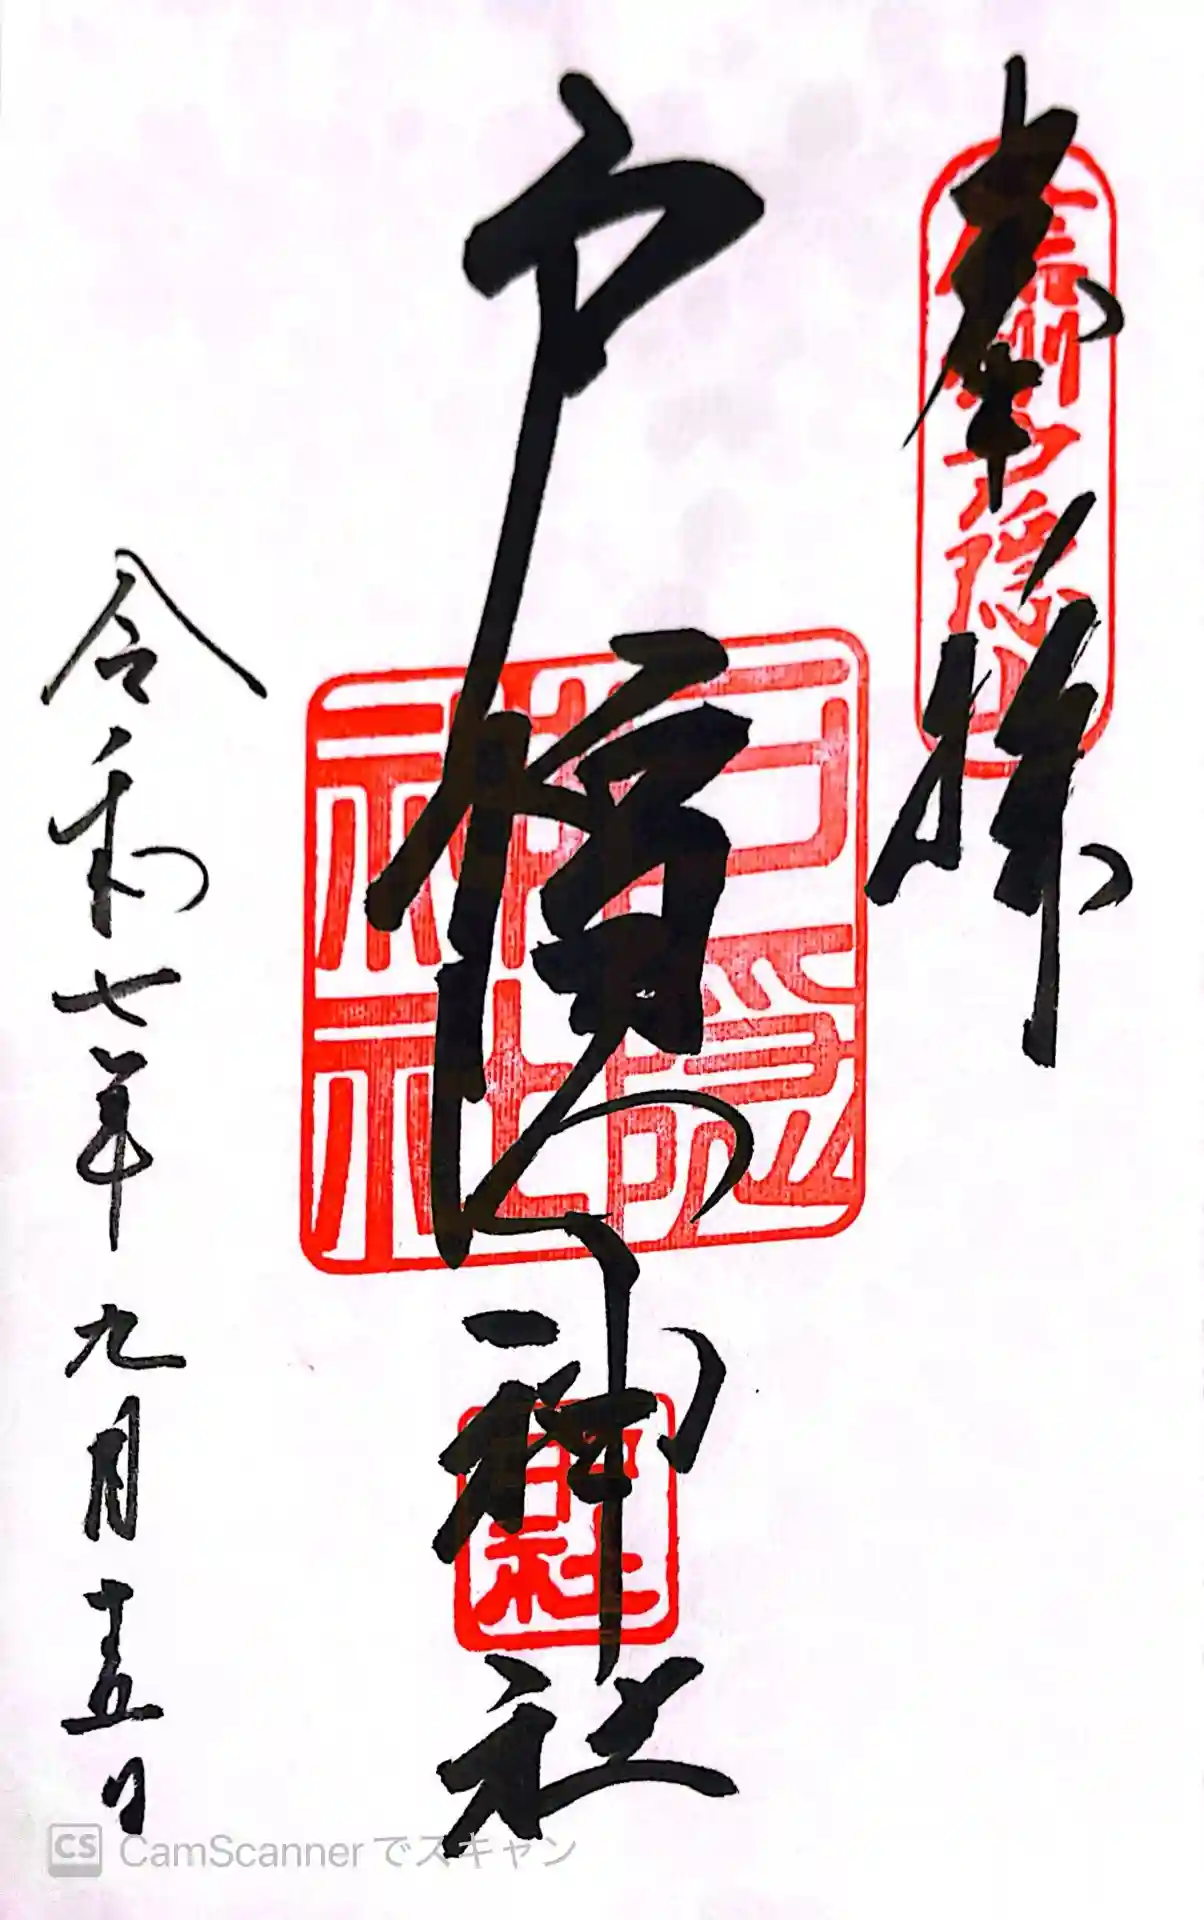 奉拝
信州戸隠山
戸隠神社
戸隠神社
中社
令和七年九月十五日
CS CamScannerでスキャン